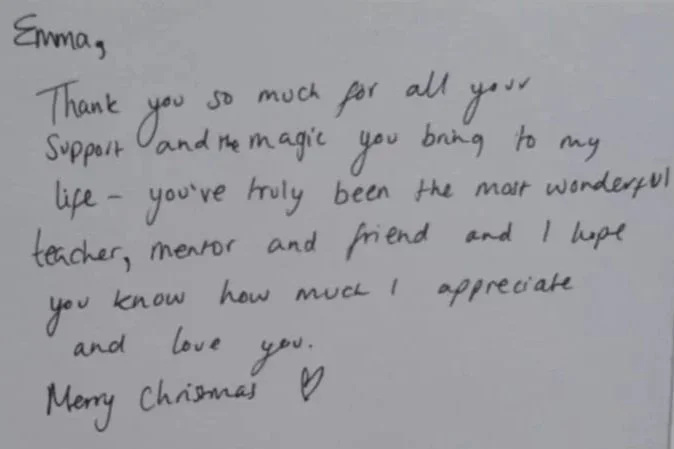 Emma,
Thank you so much for all your
support and the magic you bring to my
life - you've truly been the most wonderful
teacher, mentor and friend and I hope
you know how much I appreciate
and love you.
Merry Christmas ♡